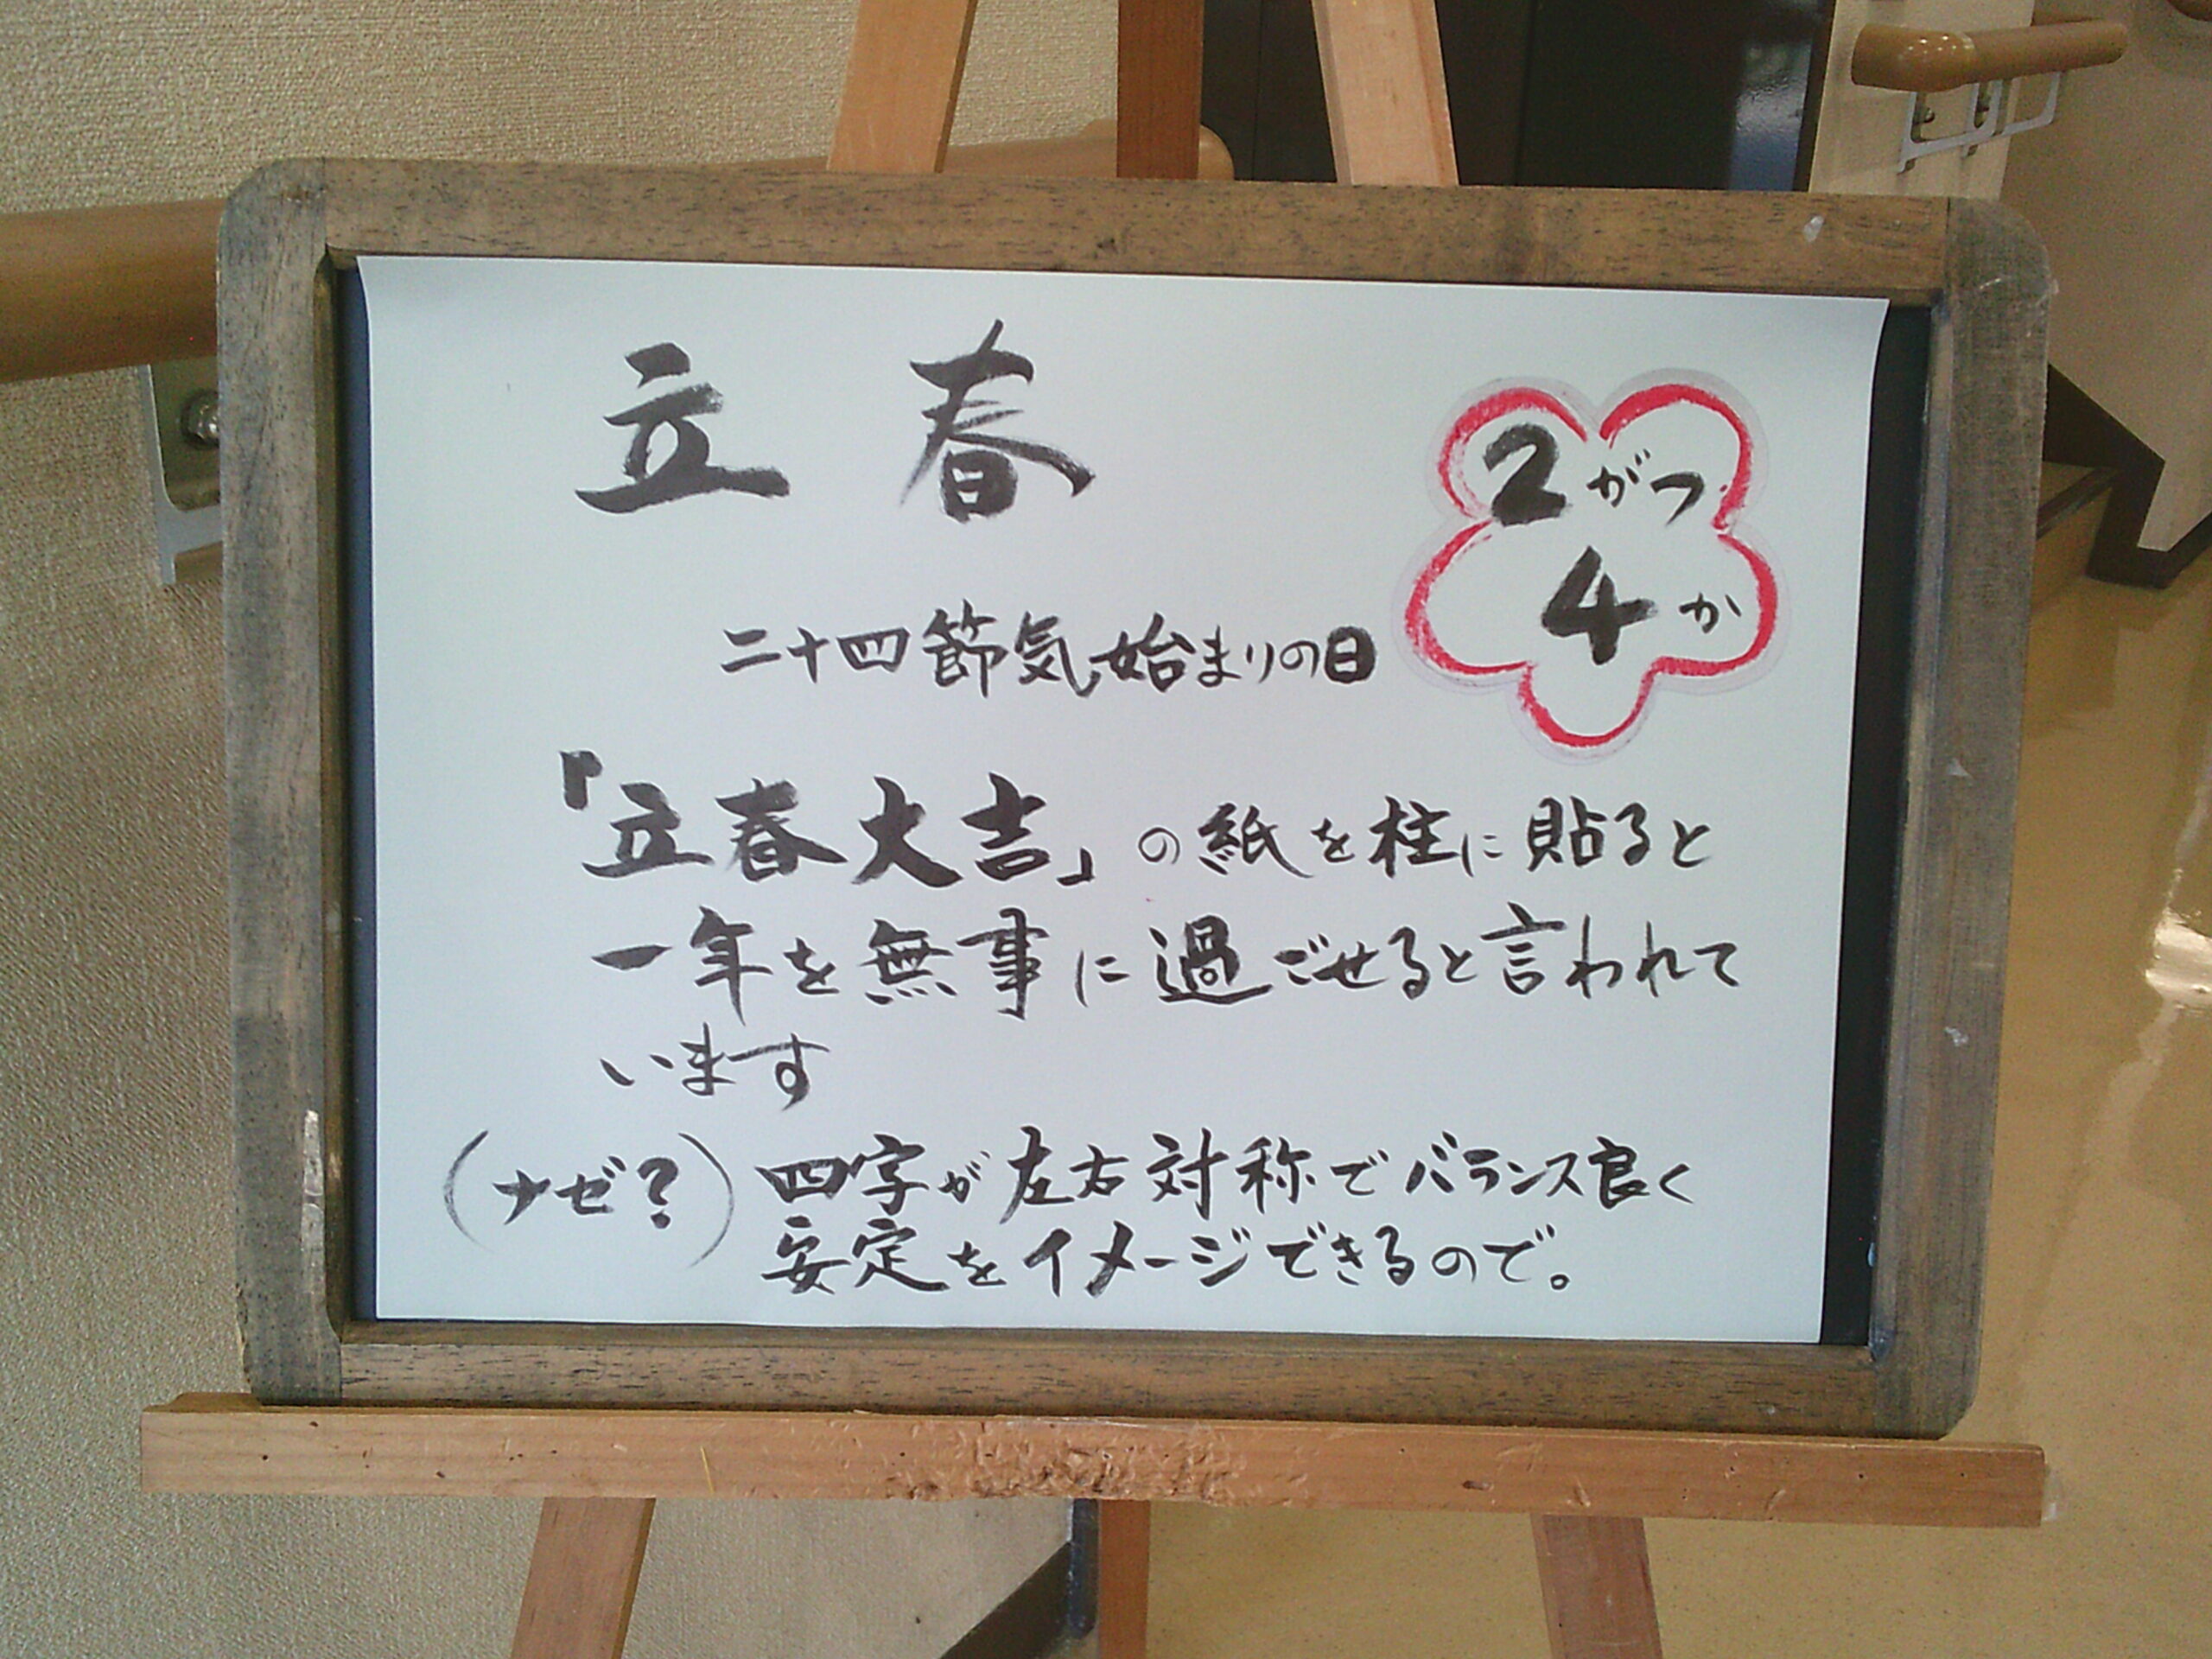 立春
2がつ
4か
二十四節気始まりの日
「立春大吉」の紙を柱に貼ると
一年を無事に過ごせると言われて
います
(ナゼ?) 四字が左右対称でバランス良く
安定をイメージできるので。